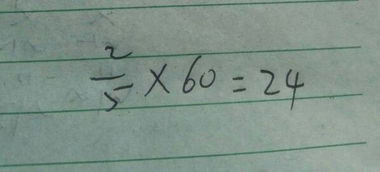 2/5 × 60 = 24